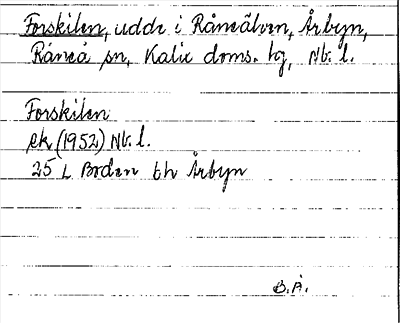 Forskilen, udde i Råneälven, Årbyn,
Råneå sn, Kalix doms. hg, Nb. l.
Forskilen
ek (1952) Nb. l.
25 L Boden bh Årbyn
B.Å.